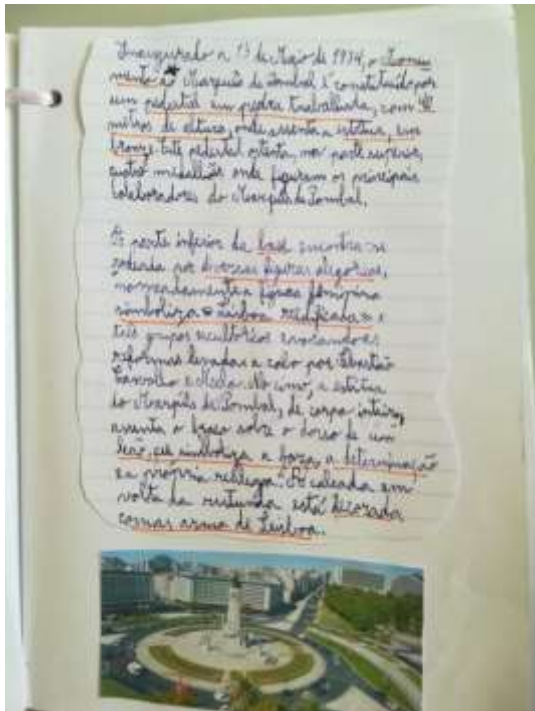 Inaugurado a 13 de Maio de 1934, o Monu
mento ao Marquês de Pombal é constituído por
um pedestal em pedra trabalhada, com 40
metros de altura, onde assenta a estátua, em
bronze. Este pedestal ostenta, na parte superior,
quatro medalhões onde figuram os principais
colaboradores do Marquês de Pombal.
A parte inferior da base encontra-se
rodeada por diversas figuras alegóricas,
nomeadamente a figura feminina
simboliza "Lisboa reedificada" e
três grupos escultóricos evocando as
reformas levadas a cabo por Sebastião
Carvalho e Melo. No cimo, a estátua
do Marquês de Pombal, de corpo inteiro,
assenta o braço sobre o dorso de um
leão, que simboliza a força, a determinação
e a própria realeza. A calçada em
volta da rotunda está decorada
com as arma de Lisboa.